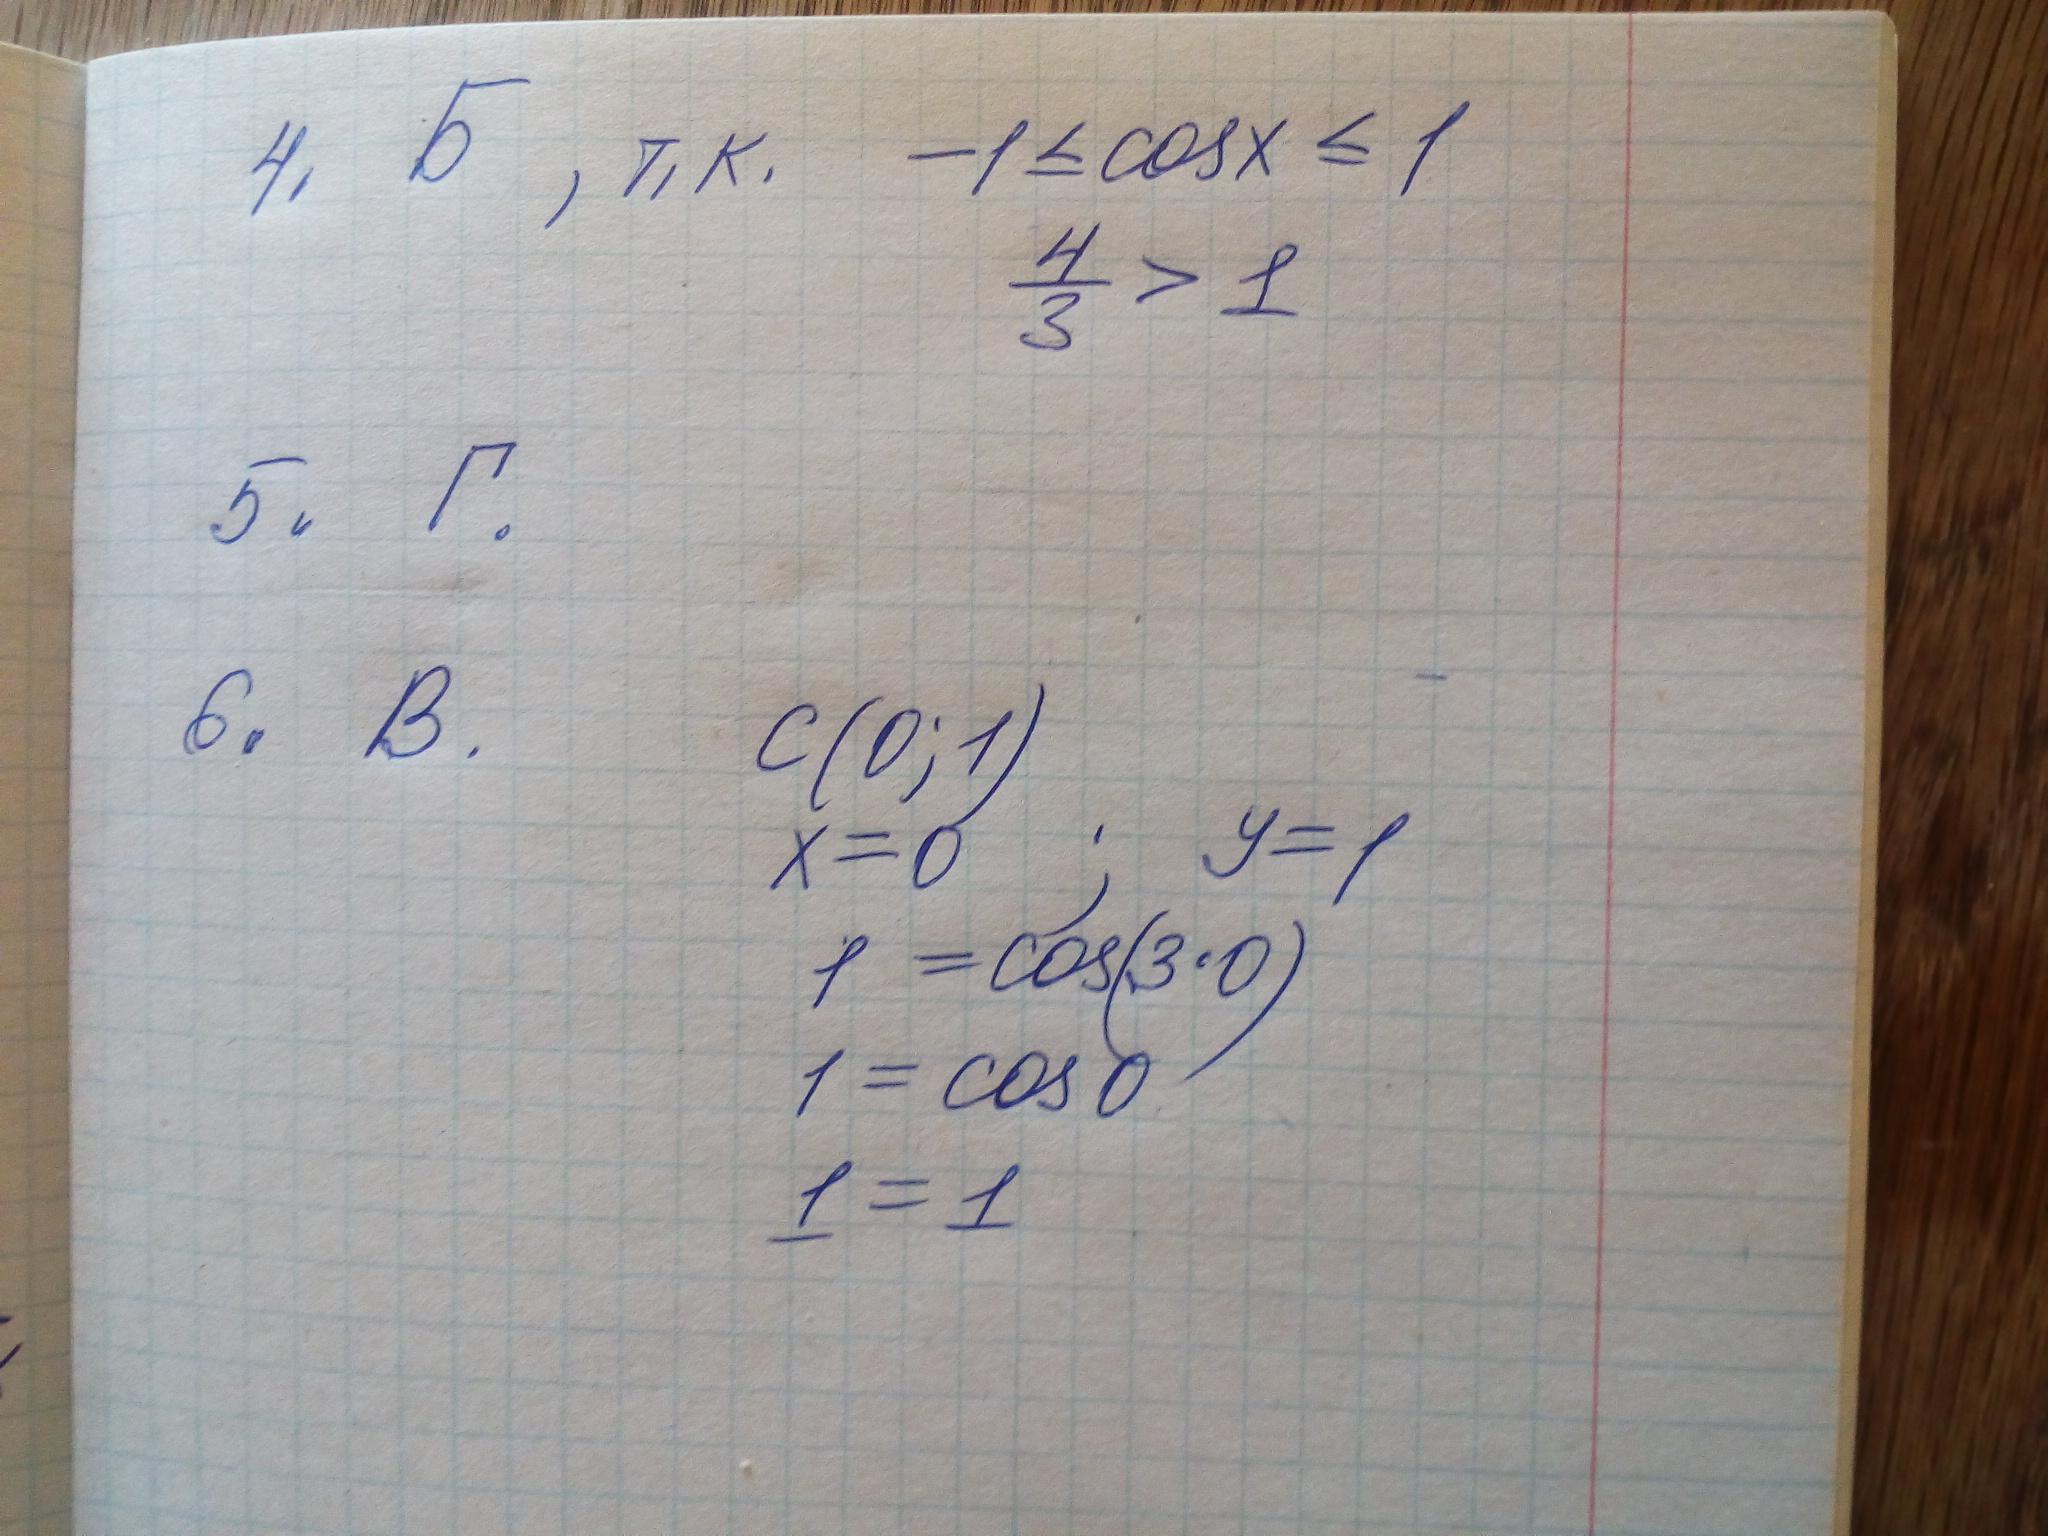 4. Б, т.к. -1 ≤ cosx ≤ 1
4/3 > 1
5. Г.
6. В. C(0;1)
x=0 ; y=1
1 = cos(3·0)
1 = cos0
1 = 1